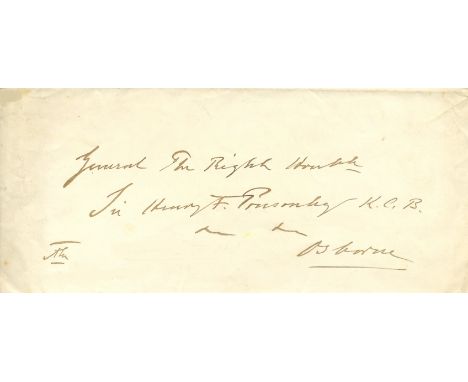 General The Right Honble
Sir Henry F. Ponsonby K.C.B.
Osborne